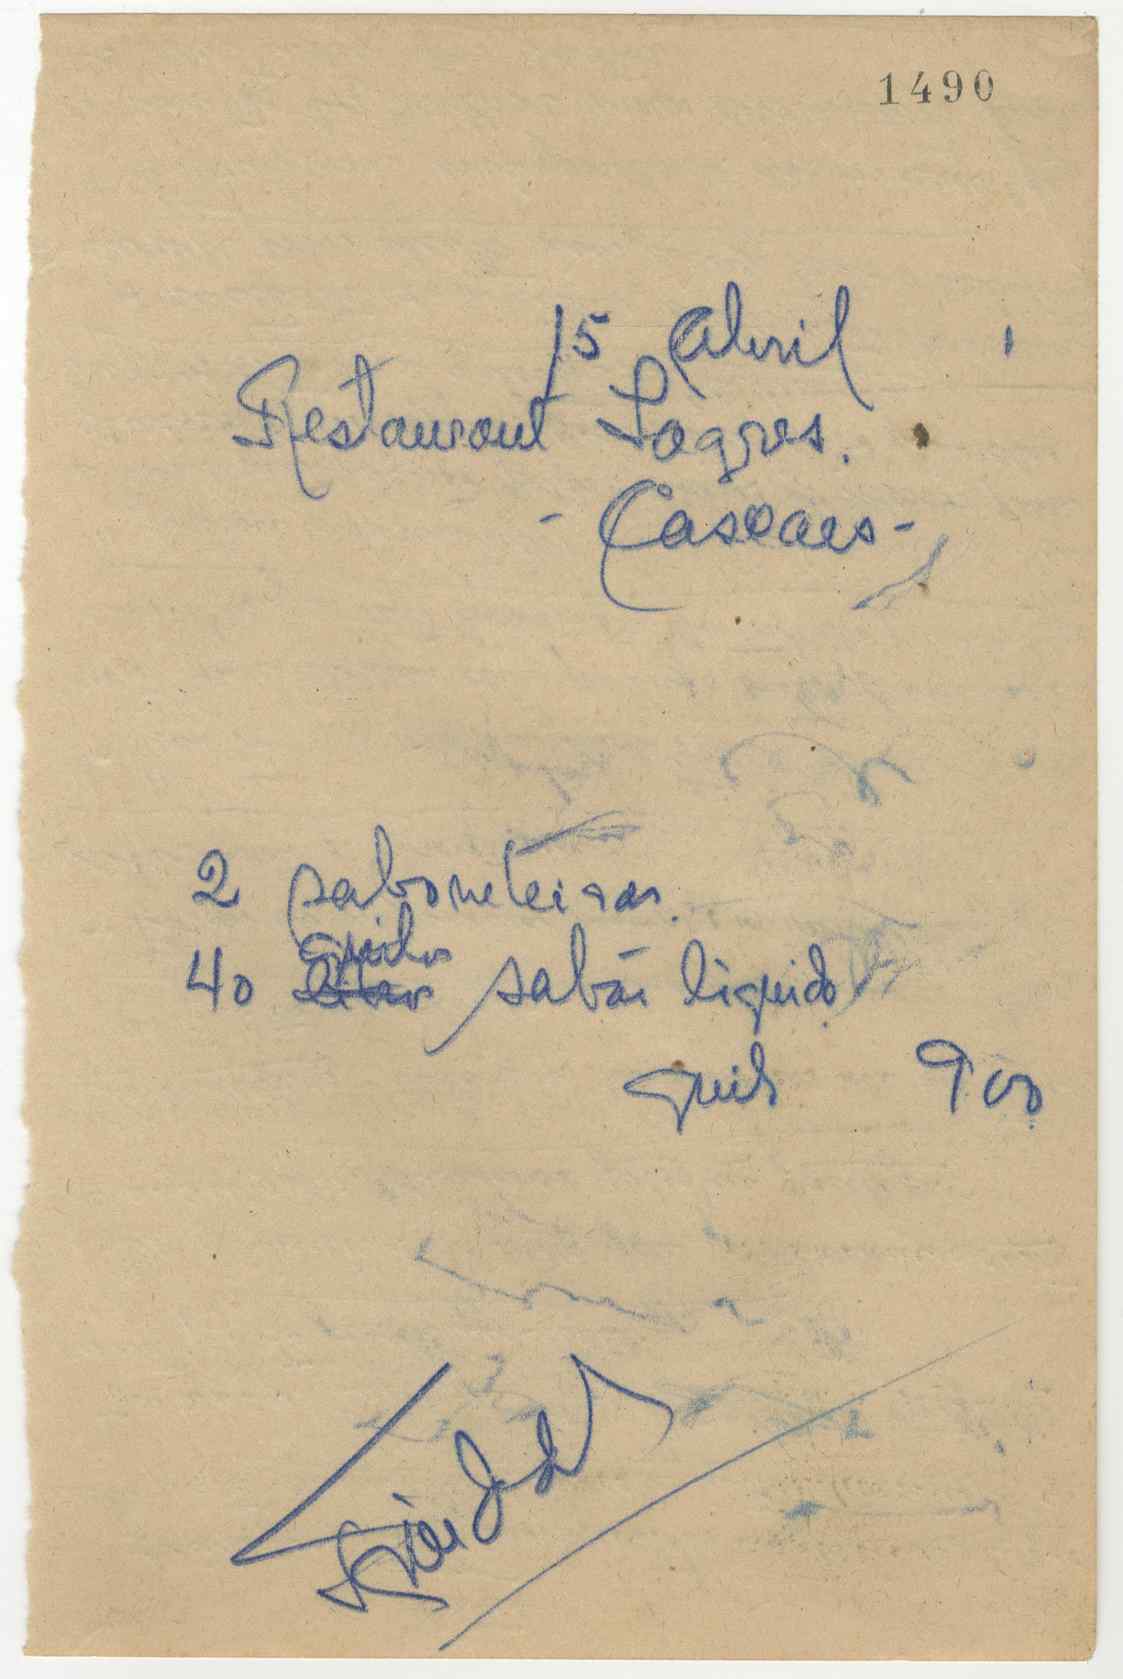 1490
15 Abril
Restaurant Sagres.
- Cascaes -
2 saboneteiras.
quilos
40 litros sabão liquido
quilo 900